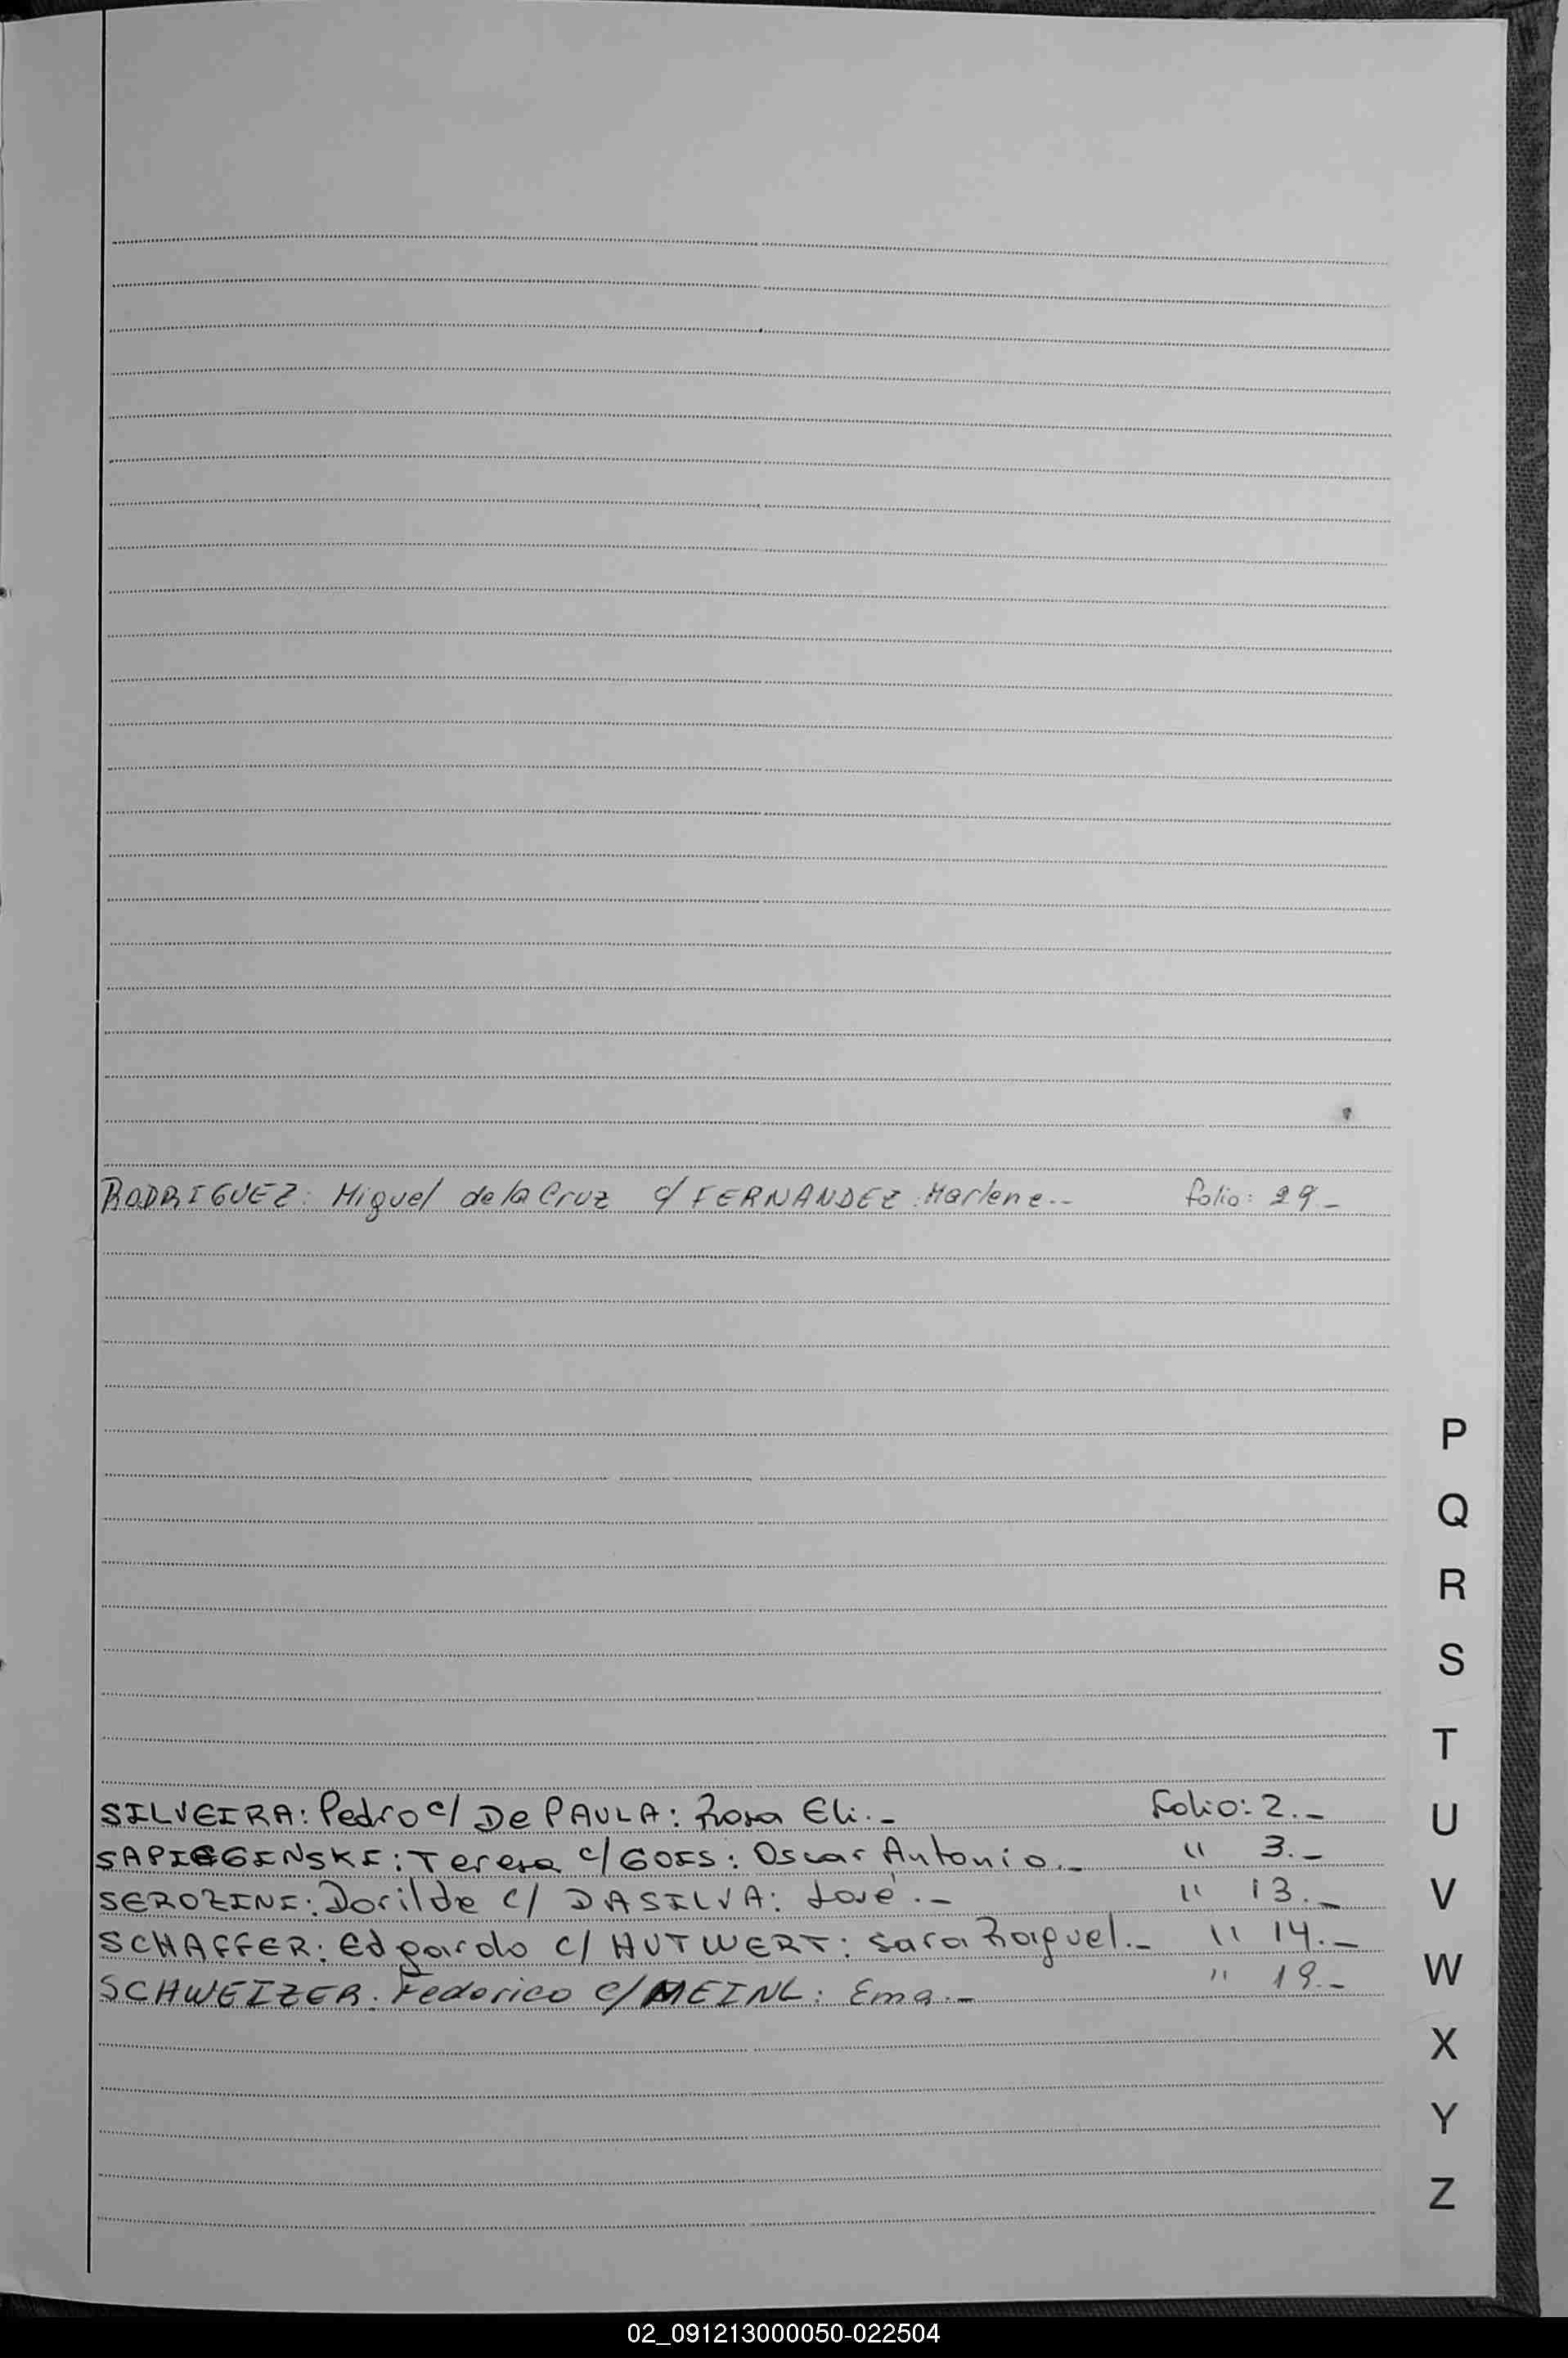 RODRIGUEZ: Miguel de la Cruz c/ FERNANDEZ: Marlene.- folio: 29.-
P
Q
R
S
T
SILVEIRA: Pedro c/ De PAULA: Rosa Eli.- Folio: 2.-
U
SAPIEGINSKI: Teresa c/ GOIS: Oscar Antonio.- " 3.-
SEROZINI: Dorilde c/ DASILVA: José.- " 13.-
V
SCHAFFER: Edgardo c/ HUTWERT: Sara Raquel.- " 14.-
W
SCHWEIZER: Federico c/ MEINL: Ema.- " 19.-
X
Y
Z
02_091213000050-022504